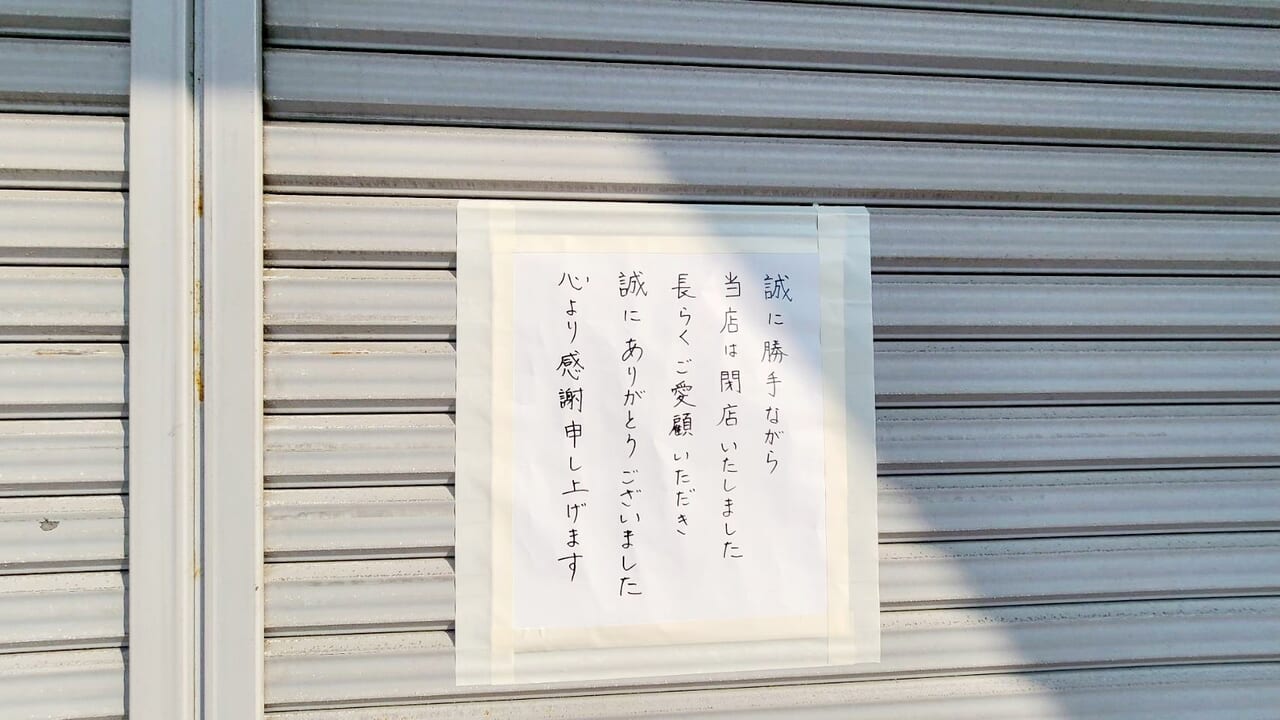 誠に勝手ながら
当店は閉店いたしました
長らくご愛顧いただき
誠にありがとうございました
心より感謝申し上げます